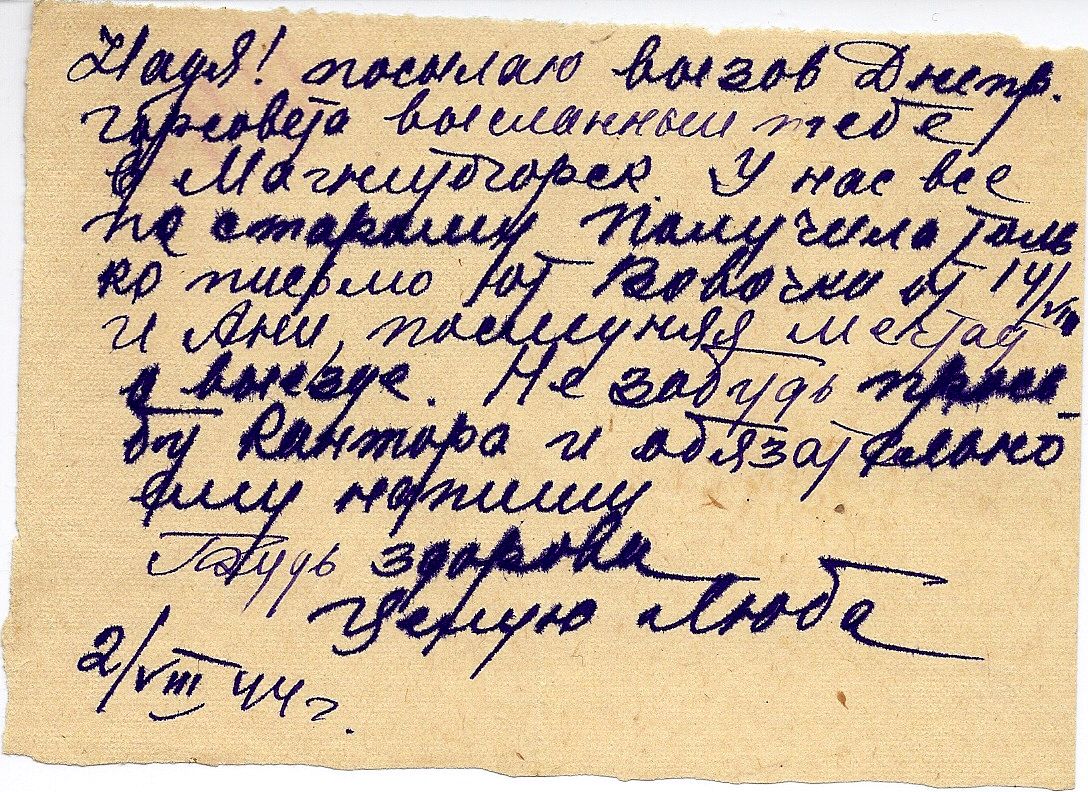 Надя! посылаю вызов Днепр.
горсовета высланный тебе
в Магнитогорск У нас все
по старому Получила толь
ко письмо от Вовочки от 14/VII
и Ани, последняя мечтает
о выезде. Не забудь прось-
бу Кантора и обязательно
ему напиши
Будь здорова
Целую Люба
2/VIII 44 г.